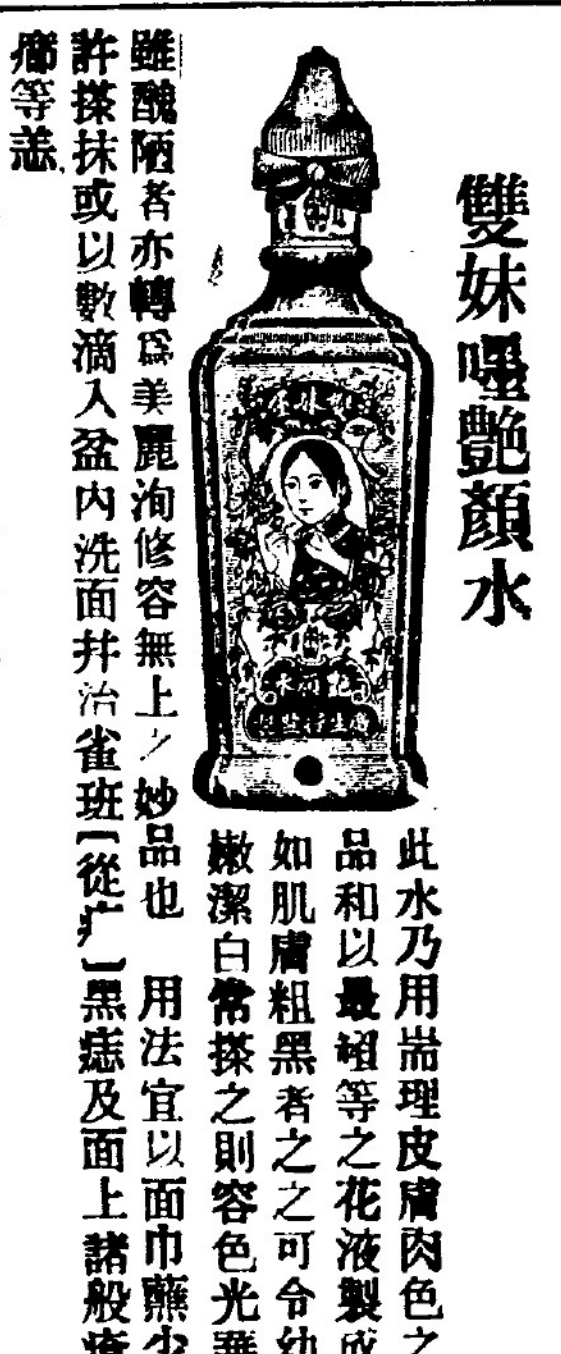 雙妹嚜艷顏水
此水乃用耑理皮膚肉色之
品和以最超等之花液製成
如肌膚粗黑者之之可令幼
嫩潔白常搽之則容色光華
雖醜陋者亦轉為美麗洵修容無上之妙品也 用法宜以面巾蘸少
許搽抹或以數滴入盆內洗面并治雀班[從疒]黑痣及面上諸般瘡
癤等恙